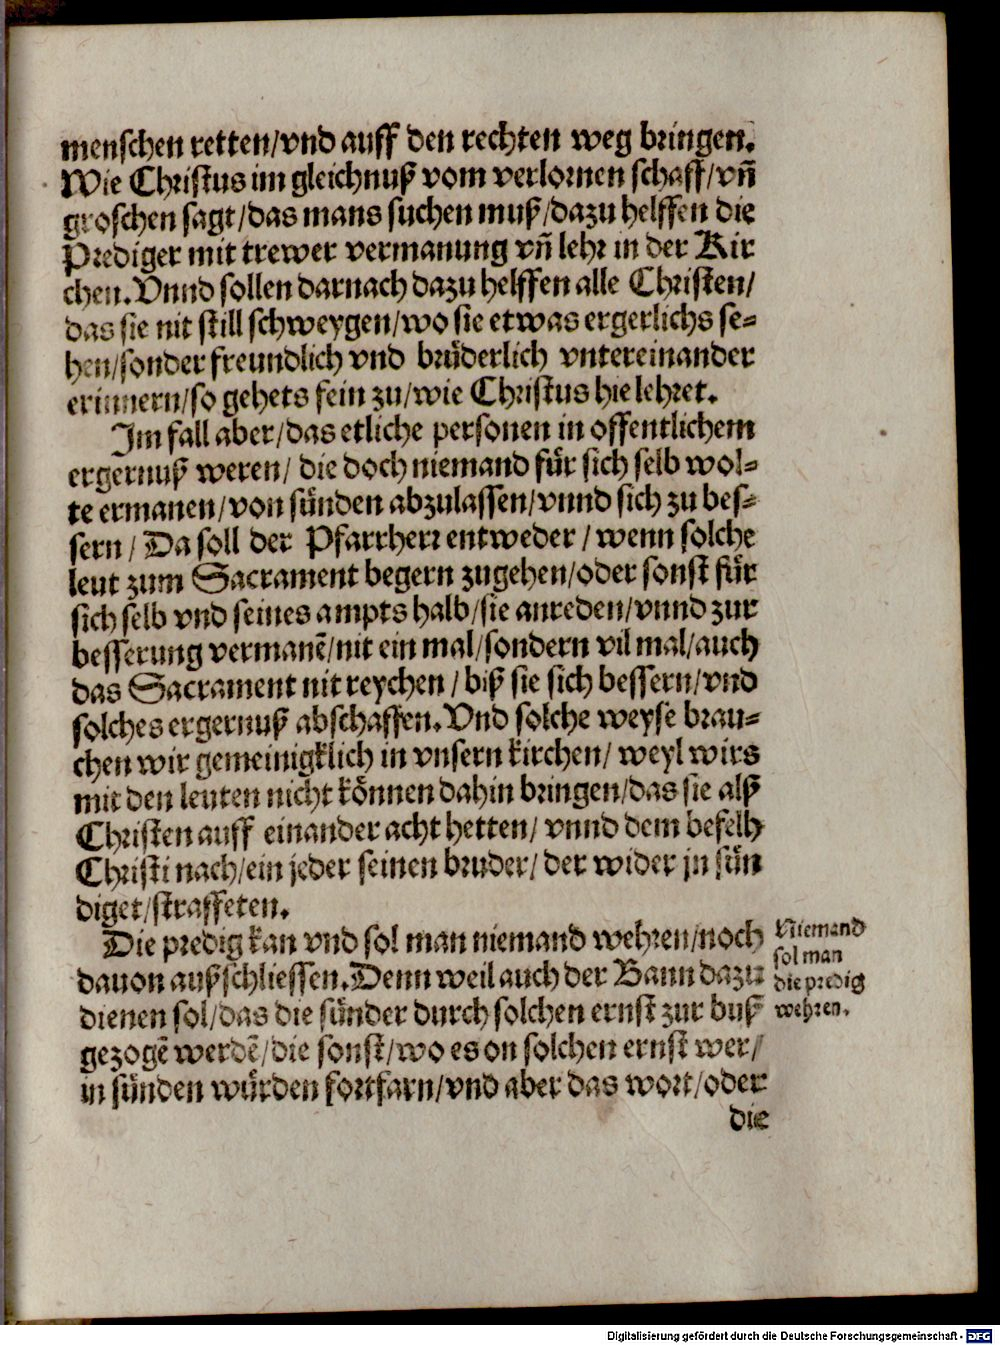 menschen retten/vnd auff den rechten weg bringen.
Wie Christus im gleichnuß vom verlornen schaff/vñ
groschen sagt/das mans suchen muß/dazu helffen die
Prediger mit trewer vermanung vñ lehr in der Kir
chen. Vnnd sollen darnach dazu helffen alle Christen/
das sie nit still schweygen/wo sie etwas ergerlichs se=
hen/sonder freundlich vnd brüderlich vntereinander
erinnern/so gehets fein zu/wie Christus hie lehret.
Im fall aber/das etliche personen in offentlichem
ergernuß weren/ die doch niemand für sich selb wol=
te ermanen/von sünden abzulassen/vnnd sich zu bes=
sern/ Da soll der Pfarrherr entweder/ wenn solche
leut zum Sacrament begern zugehen/oder sonst für
sich selb vnd seines ampts halb/sie anreden/vnnd zur
besserung vermanẽ/nit ein mal/sondern vil mal/auch
das Sacrament nit reychen/ biß sie sich bessern/vnd
solches ergernuß abschaffen. Vnd solche weyse brau=
chen wir gemeinigklich in vnsern kirchen/ weyl wirs
mit den leuten nicht können dahin bringen/das sie alß
Christen auff einander acht hetten/ vnnd dem befelh
Christi nach/ein jeder seinen bruder/ der wider jn sün
diget/straffeten.
Die predig kan vnd sol man niemand wehren/noch
dauon außschliessen. Denn weil auch der Bann dazu
dienen sol/das die sünder durch solchen ernst zur buß
gezogẽ werdẽ/die sonst/wo es on solchen ernst wer/
in sünden würden fortfarn/vnd aber das wort/oder
die
Niemand
sol man
die predig
wehren.
Digitalisierung gefördert durch die Deutsche Forschungsgemeinschaft - DFG